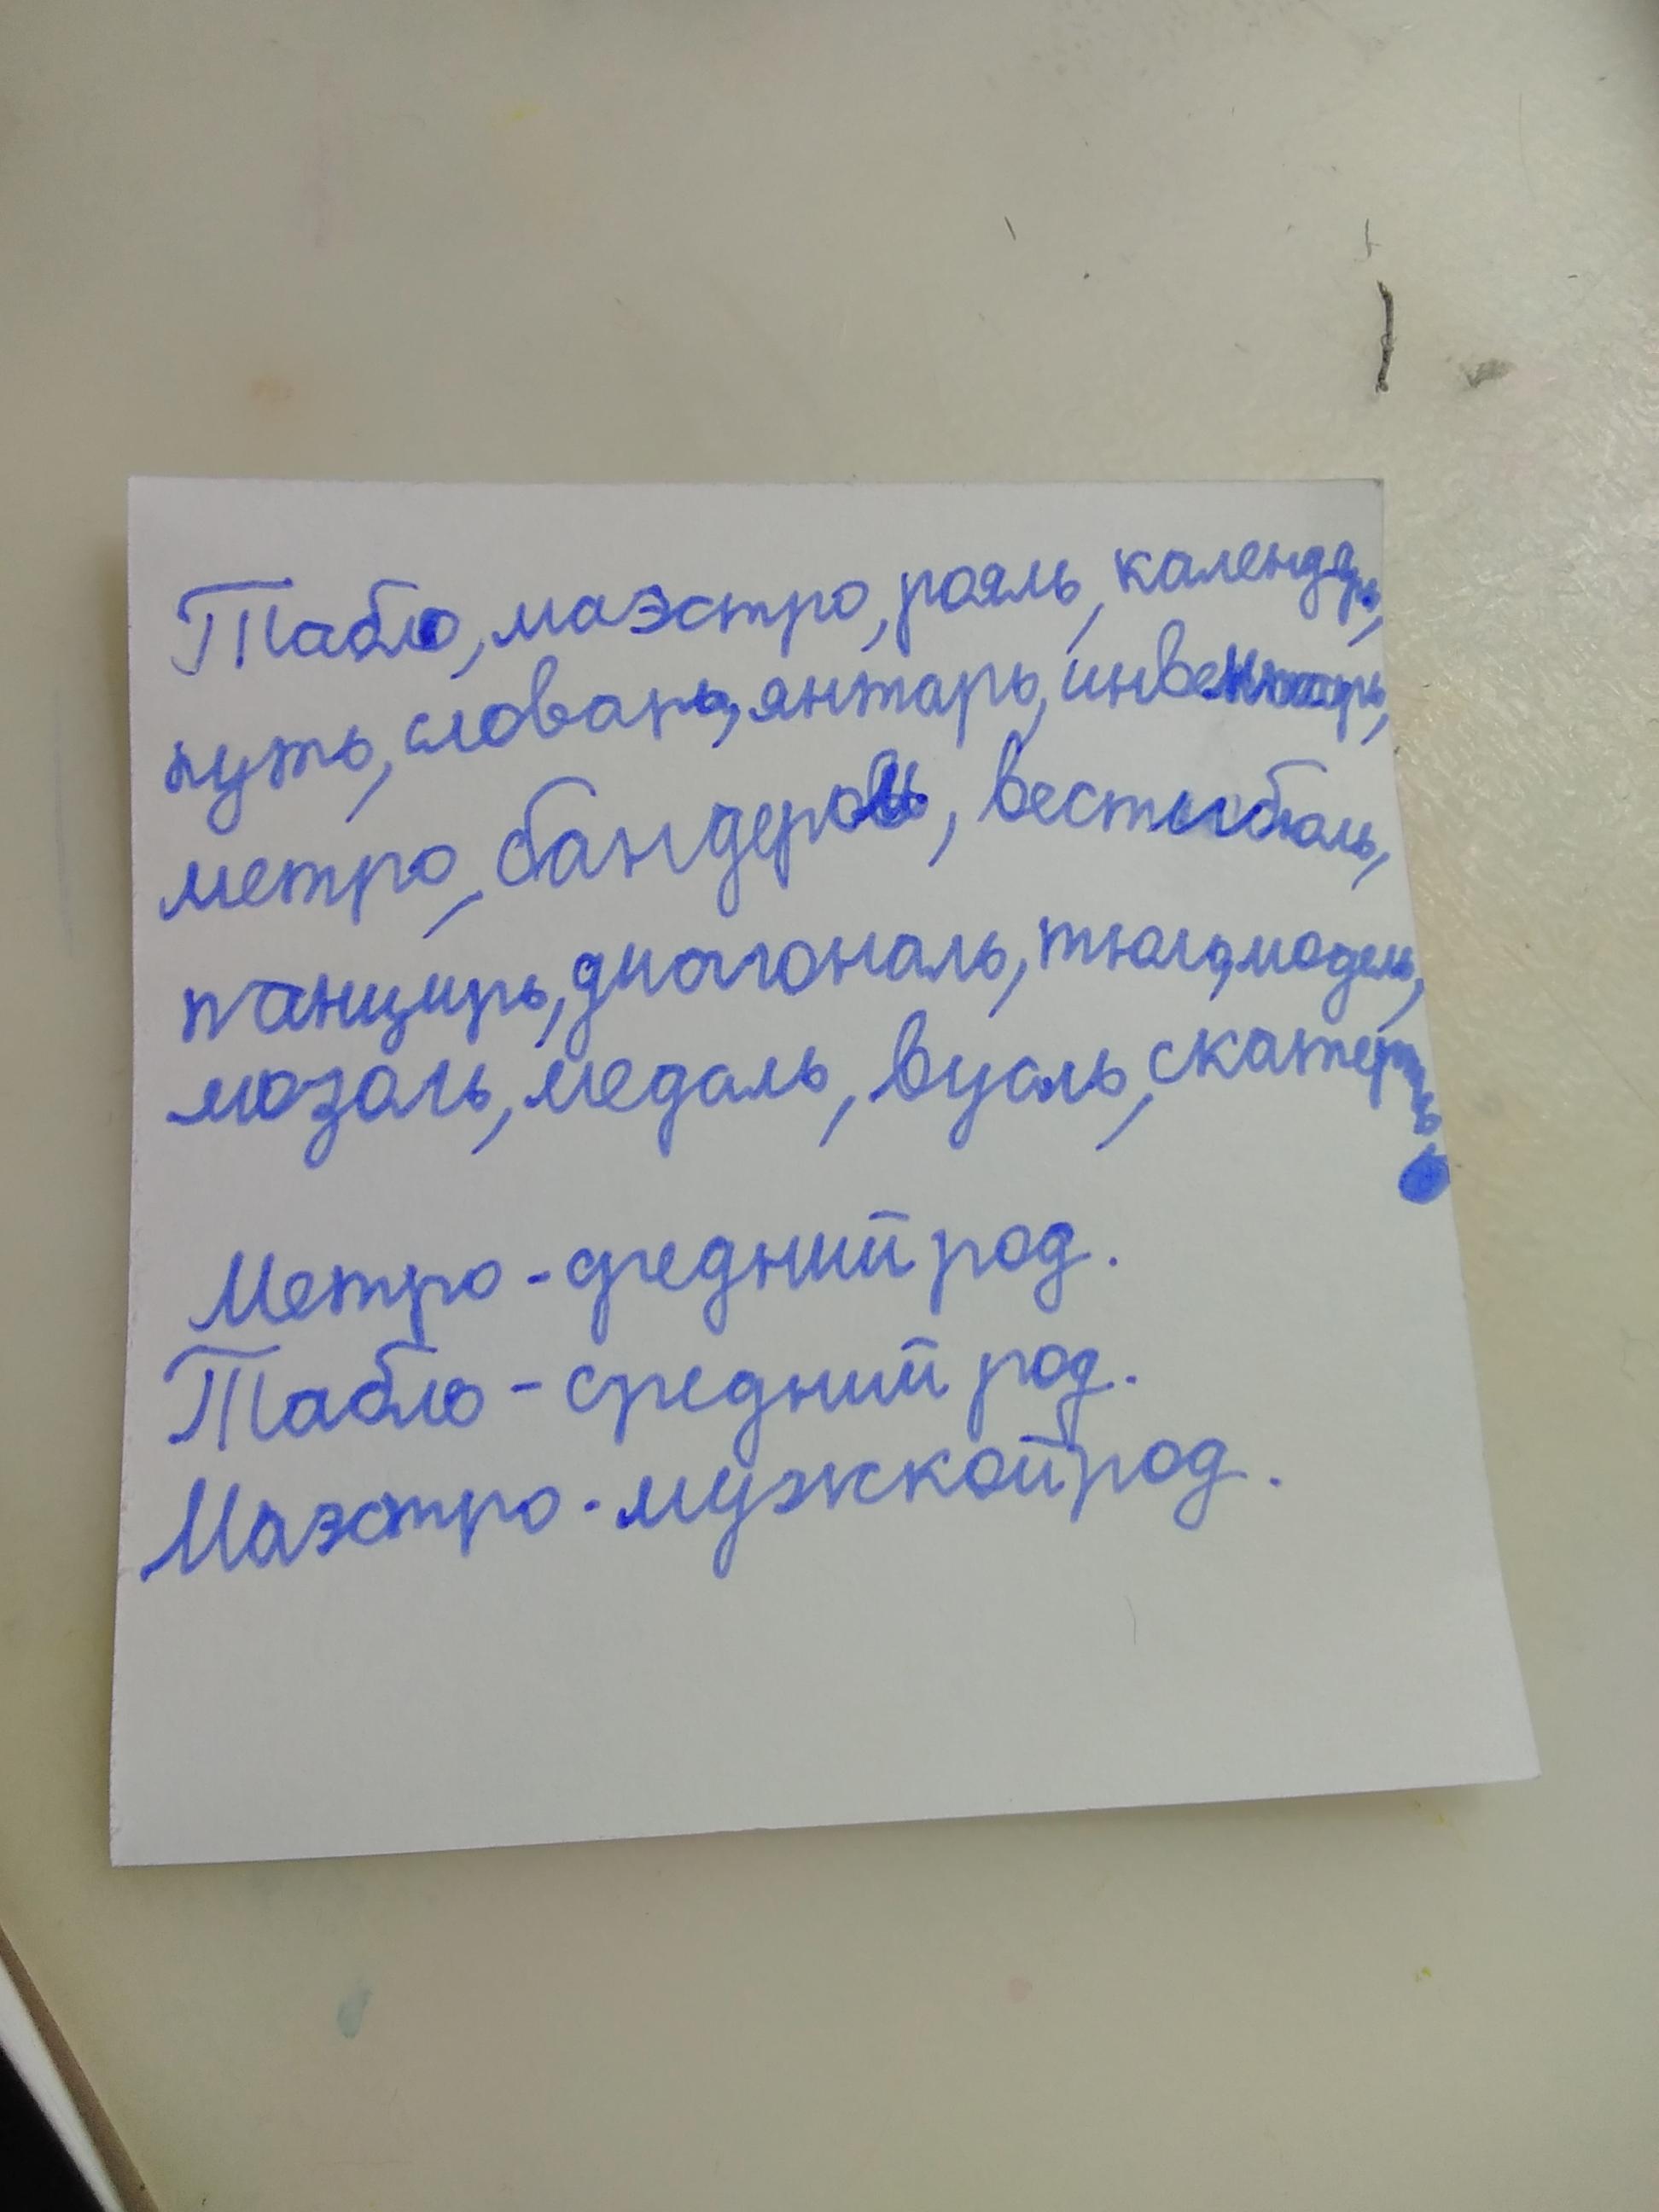 Табло, маэстро, рояль, календарь,
путь, словарь, янтарь, инвентарь,
метро, бандероль, вестибюль,
панцирь, диагональ, тюль, модель,
мозоль, медаль, вуаль, скатерть.
Метро - средний род.
Табло - средний род.
Маэстро - мужской род.